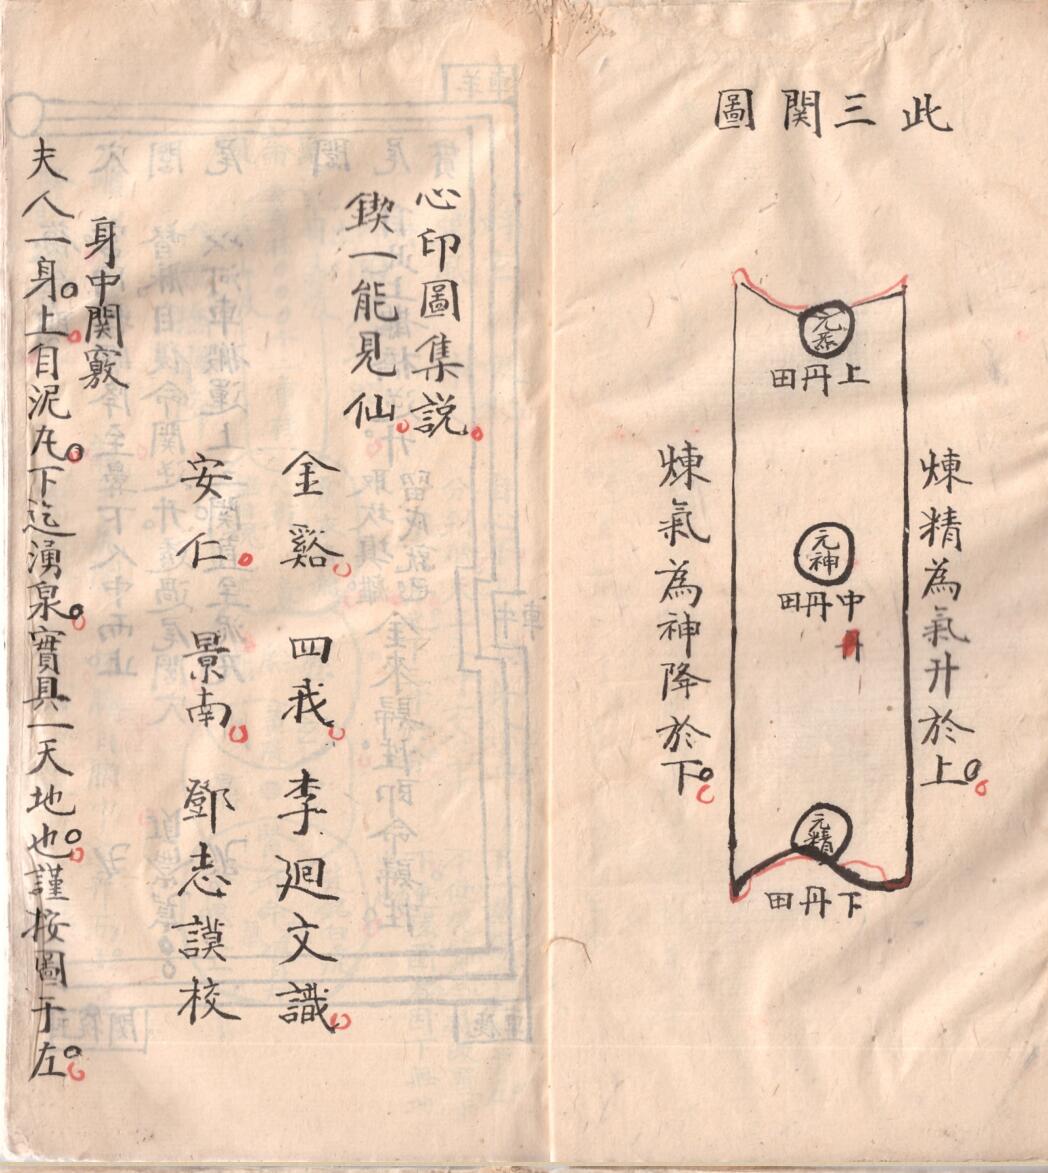 此三関圖
煉精為氣升於上。
元炁
上丹田
元神
中丹田
丹
元精
下丹田
煉氣為神降於下。
心印圖集説。
鍥一能見仙。
金谿。四我。李廻文識。
安仁。景南。鄧志謨校
身中関竅
夫人一身。上自泥丸。下迄湧泉。實具一天地也。謹按圖于左。